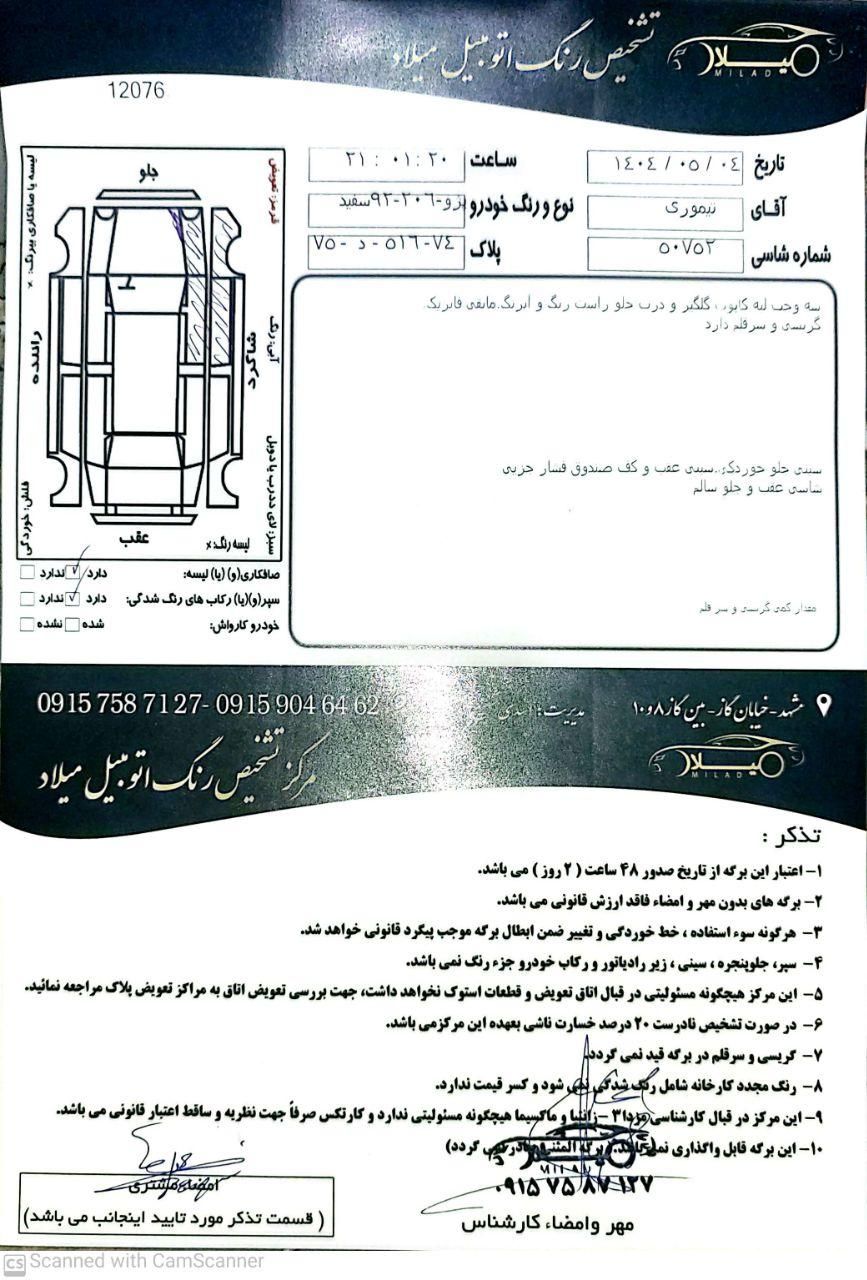 تشخیص رنگ اتومبیل میلاد
میلاد
MILAD
12076
تاریخ ۱۴۰۴ / ۰۵ / ۰۴
ساعت ۲۱ : ۰۱ : ۲۰
آقای تیموری
نوع و رنگ خودرو پژو-۲۰۶-۹۲سفید
شماره شاسی ۵۰۷۵۲
پلاک ۷۴-۵۱۶- د -۷۵
سه وجب لبه کاپوت گلگیر و درب جلو راست رنگ و آبرنگ.مابقی فابریک.
گریسی و سرقلم دارد
سینی جلو خوردگی.سینی عقب و کف صندوق فشار جزیی
شاسی عقب و جلو سالم
مقدار کمی گریسی و سر قلم
جلو
عقب
راننده
شاگرد
لیسه یا صافکاری بیرنگ: ×
فلش: خوردگی
قرمز: تعویض
آبی: رنگ
سبز: لای درب یا دوبل
لیسه رنگ: ×
صافکاری(و) (یا) لیسه: دارد √ ندارد
سپر(و)(یا) رکاب های رنگ شدگی: دارد √ ندارد
خودرو کارواش: شده نشده
مشهد-خیابان گاز- بین گاز ۸ و ۱۰
مدیریت: اسدی
0915 758 7127- 0915 904 64 62
میلاد
MILAD
مرکز تشخیص رنگ اتومبیل میلاد
تذکر :
۱- اعتبار این برگه از تاریخ صدور ۴۸ ساعت ( ۲ روز ) می باشد.
۲- برگه های بدون مهر و امضاء فاقد ارزش قانونی می باشد.
۳- هرگونه سوء استفاده ، خط خوردگی و تغییر ضمن ابطال برگه موجب پیگرد قانونی خواهد شد.
۴- سپر، جلوپنجره ، سینی ، زیر رادیاتور و رکاب خودرو جزء رنگ نمی باشد.
۵- این مرکز هیچگونه مسئولیتی در قبال اتاق تعویض و قطعات استوک نخواهد داشت، جهت بررسی تعویض اتاق به مراکز تعویض پلاک مراجعه نمائید.
۶- در صورت تشخیص نادرست ۲۰ درصد خسارت ناشی بعهده این مرکزمی باشد.
۷- گریسی و سرقلم در برگه قید نمی گردد.
۸- رنگ مجدد کارخانه شامل رنگ شدگی نمی شود و کسر قیمت ندارد.
۹- این مرکز در قبال کارشناسی مزدا۳ - زانتیا و ماکسیما هیچگونه مسئولیتی ندارد و کارتکس صرفاً جهت نظریه و ساقط اعتبار قانونی می باشد.
۱۰- این برگه قابل واگذاری نمی باشد.( برگه المثنی صادر نمی گردد)
۰۹۱۵ ۷۵۸۷ ۱۲۷
مهر وامضاء کارشناس
امضاء مشتری
( قسمت تذکر مورد تایید اینجانب می باشد)
CS Scanned with CamScanner